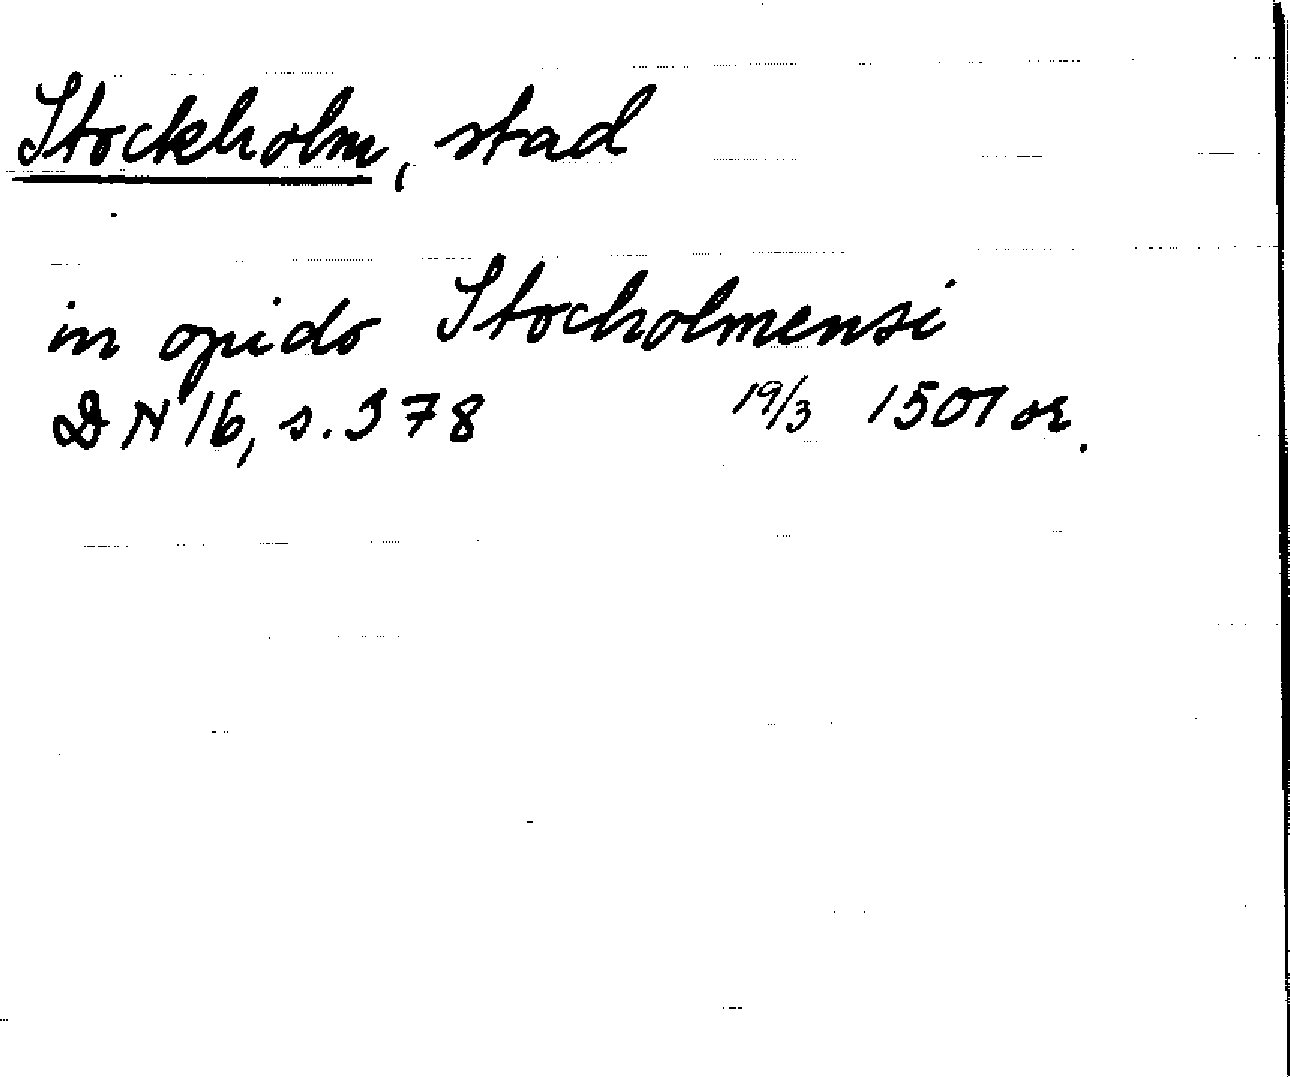 Stockholm, stad
in opido Stocholmensi
DN 16, s. 378 19/3 1507 or.